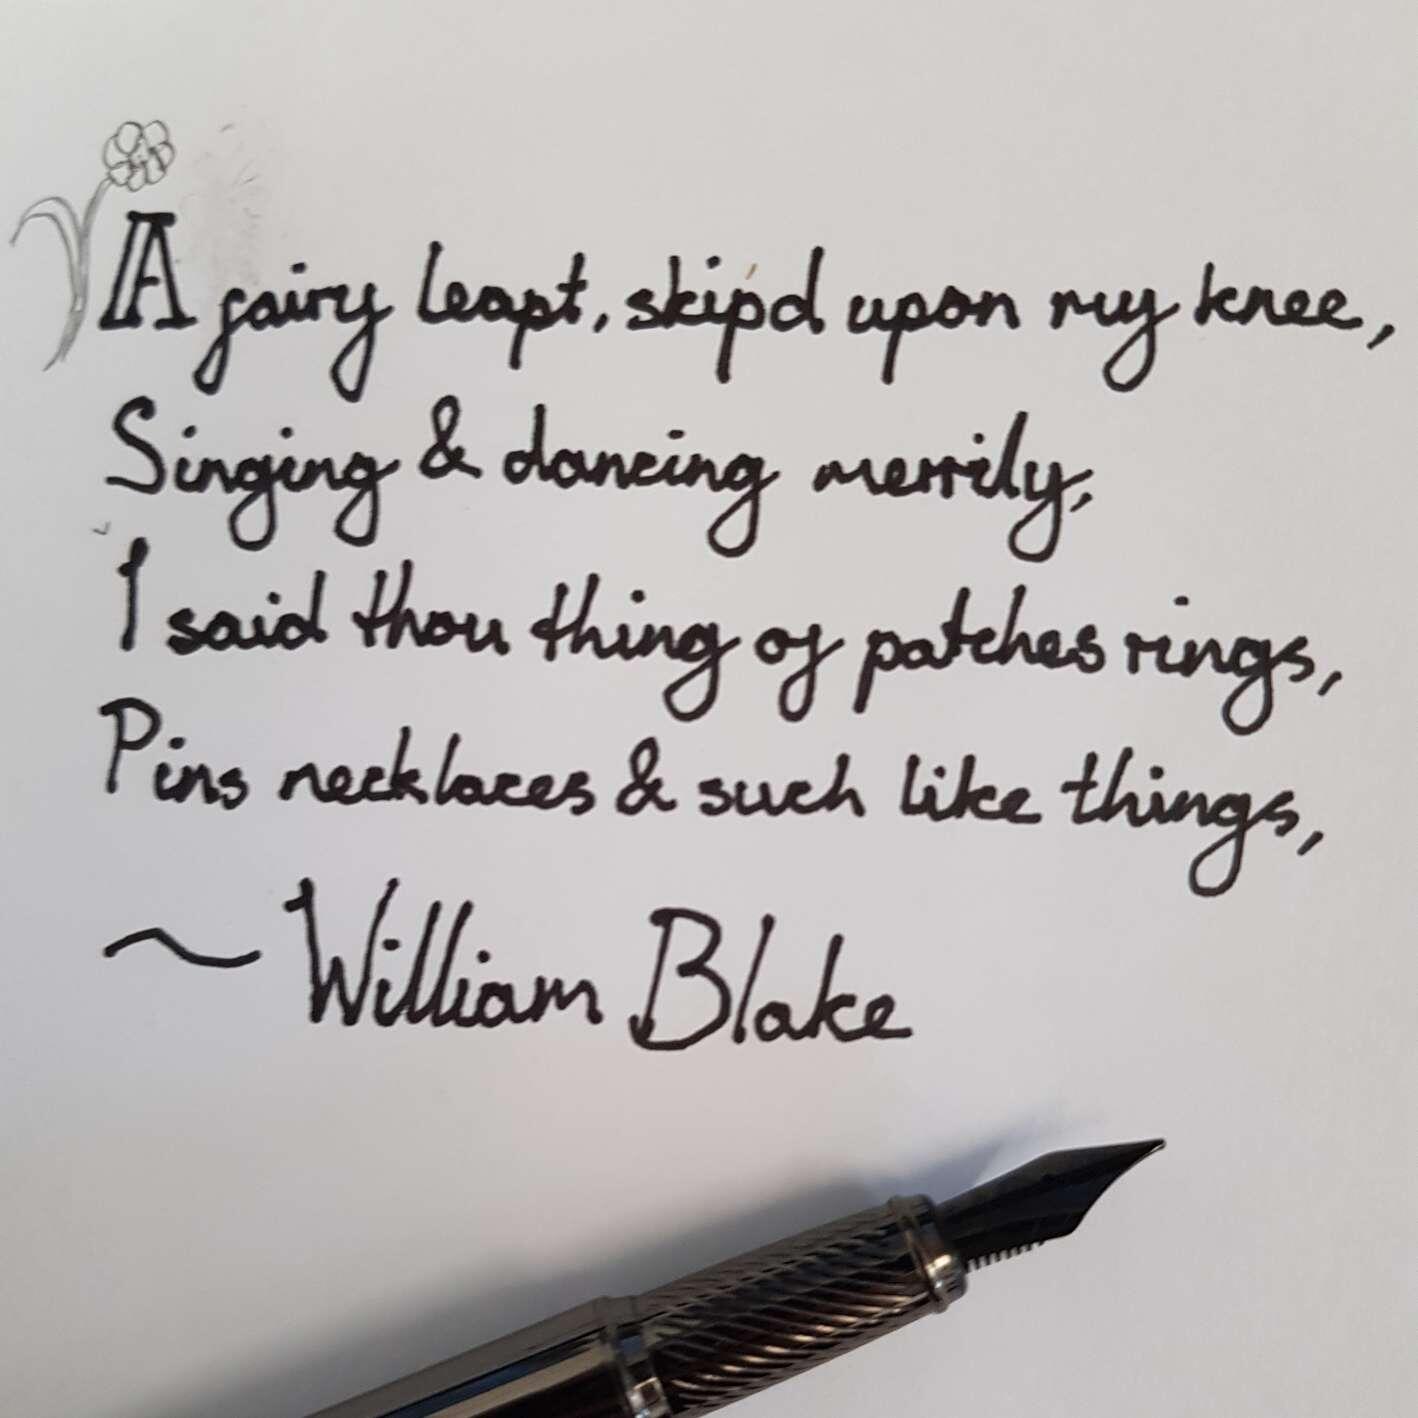 A fairy leapt, skip'd upon my knee,
Singing & dancing merrily,
I said thou thing of patches rings,
Pins necklaces & such like things,
~ William Blake